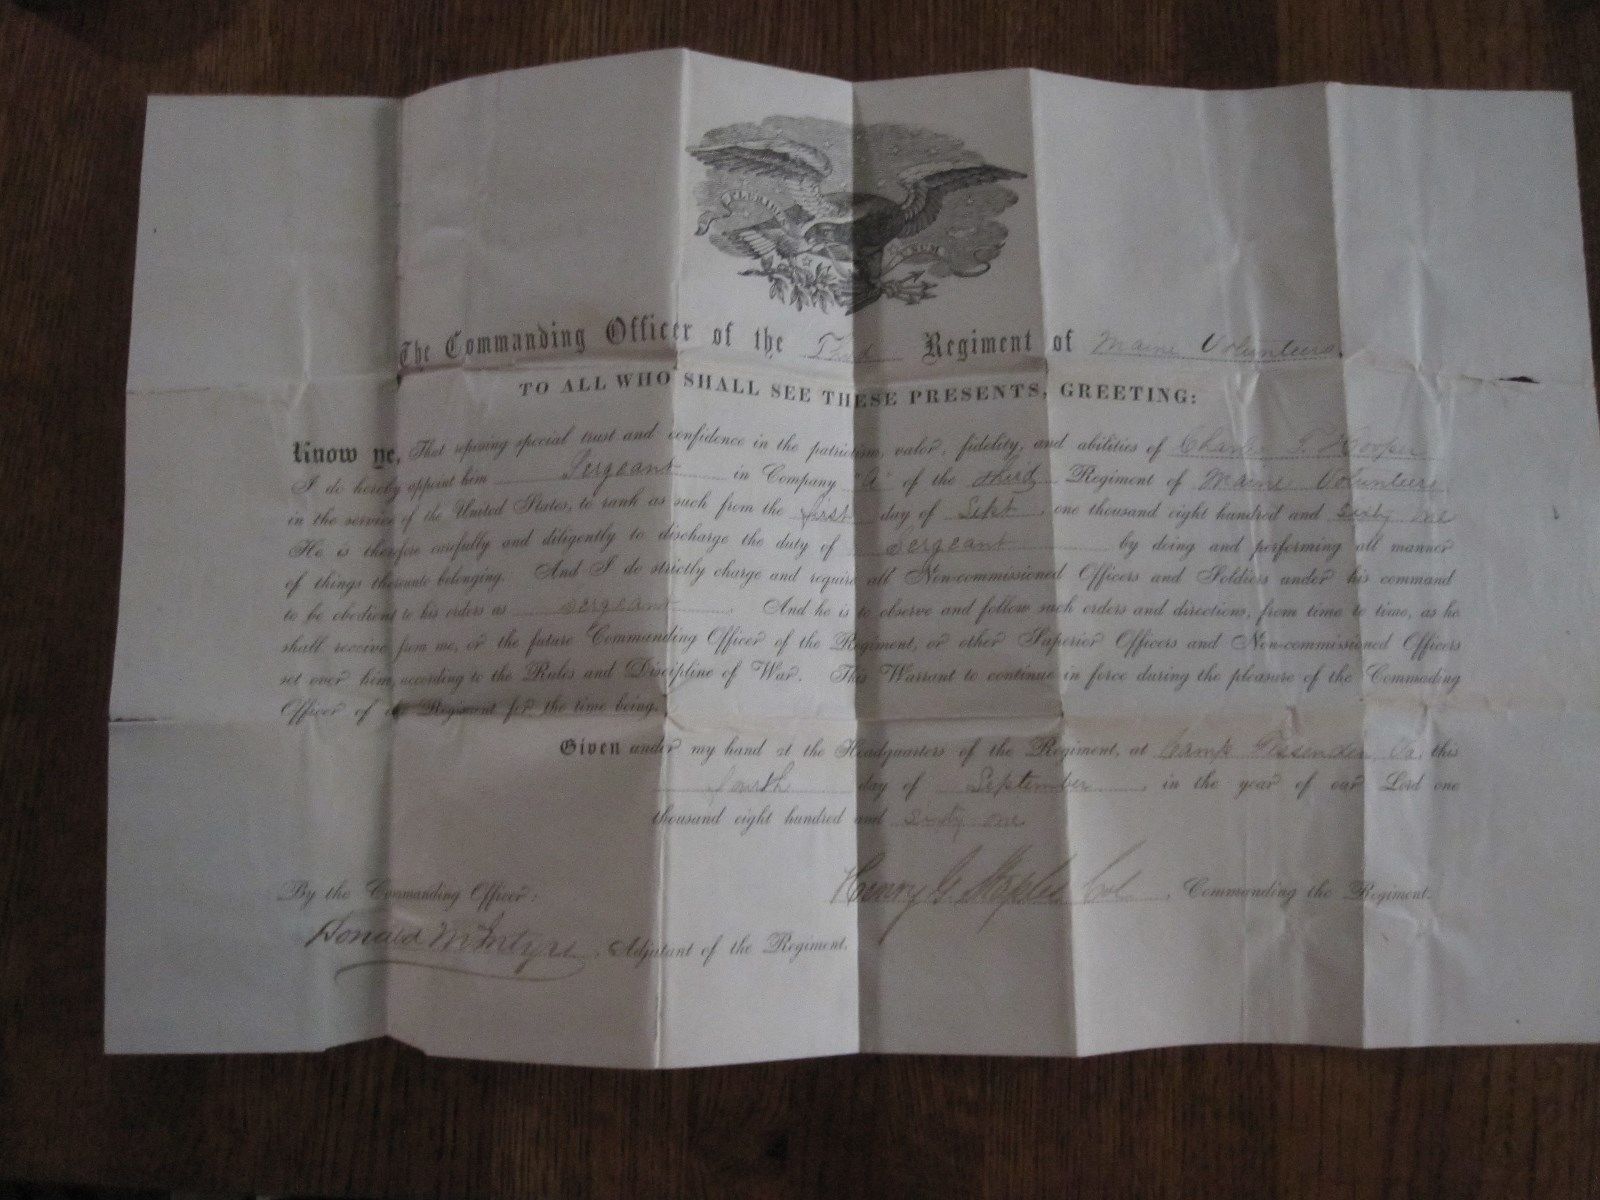 E PLURIBUS UNUM
The Commanding Officer of the Third Regiment of Maine Volunteers.
TO ALL WHO SHALL SEE THESE PRESENTS, GREETING:
Know ye, That reposing special trust and confidence in the patriotism, valor, fidelity, and abilities of Charles T. Hooper
I do hereby appoint him Sergeant in Company "A" of the third Regiment of Maine Volunteers
in the service of the United States, to rank as such from the first day of Sept, one thousand eight hundred and sixty one
He is therefore carefully and diligently to discharge the duty of Sergeant by doing and performing all manner
of things thereunto belonging. And I do strictly charge and require all Non-commissioned Officers and Soldiers under his command
to be obedient to his orders as Sergeant. And he is to observe and follow such orders and directions, from time to time, as he
shall receive from me, or the future Commanding Officer of the Regiment, or other Superior Officers and Non-commissioned Officers
set over him, according to the Rules and Discipline of War. This Warrant to continue in force during the pleasure of the Commading
Officer of the Regiment for the time being.
Given under my hand at the Headquarters of the Regiment, at Camp Va. this
fourth day of September, in the year of our Lord one
thousand eight hundred and sixty one
Henry G Staples Col, Commanding the Regiment.
By the Commanding Officer:
Donald McIntyre, Adjutant of the Regiment.